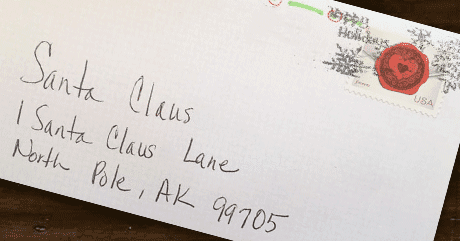 Happy
Holidays
USA
Santa Claus
1 Santa Claus Lane
North Pole, AK 99705